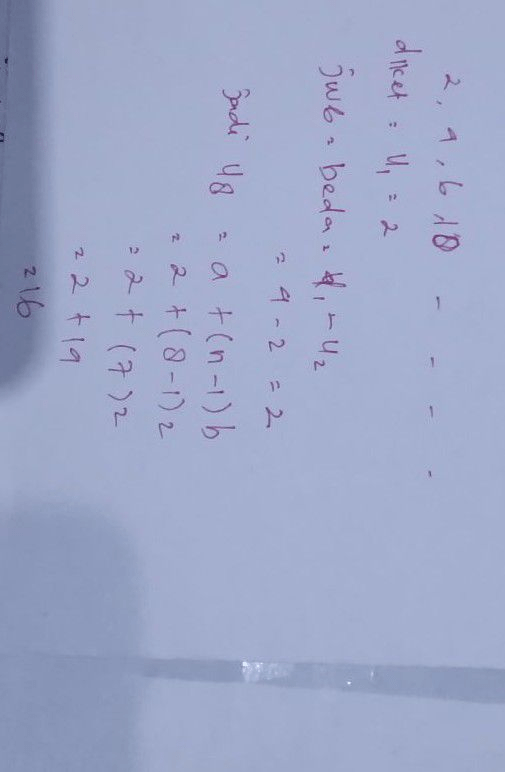 2, 4, 6, 10 - - - -
diket = U₁ = 2
Jwb = beda = U₁ - U₂
= 4 - 2 = 2
Jadi U8 = a + (n-1) b
= 2 + (8-1) 2
= 2 + (7) 2
= 2 + 14
= 16